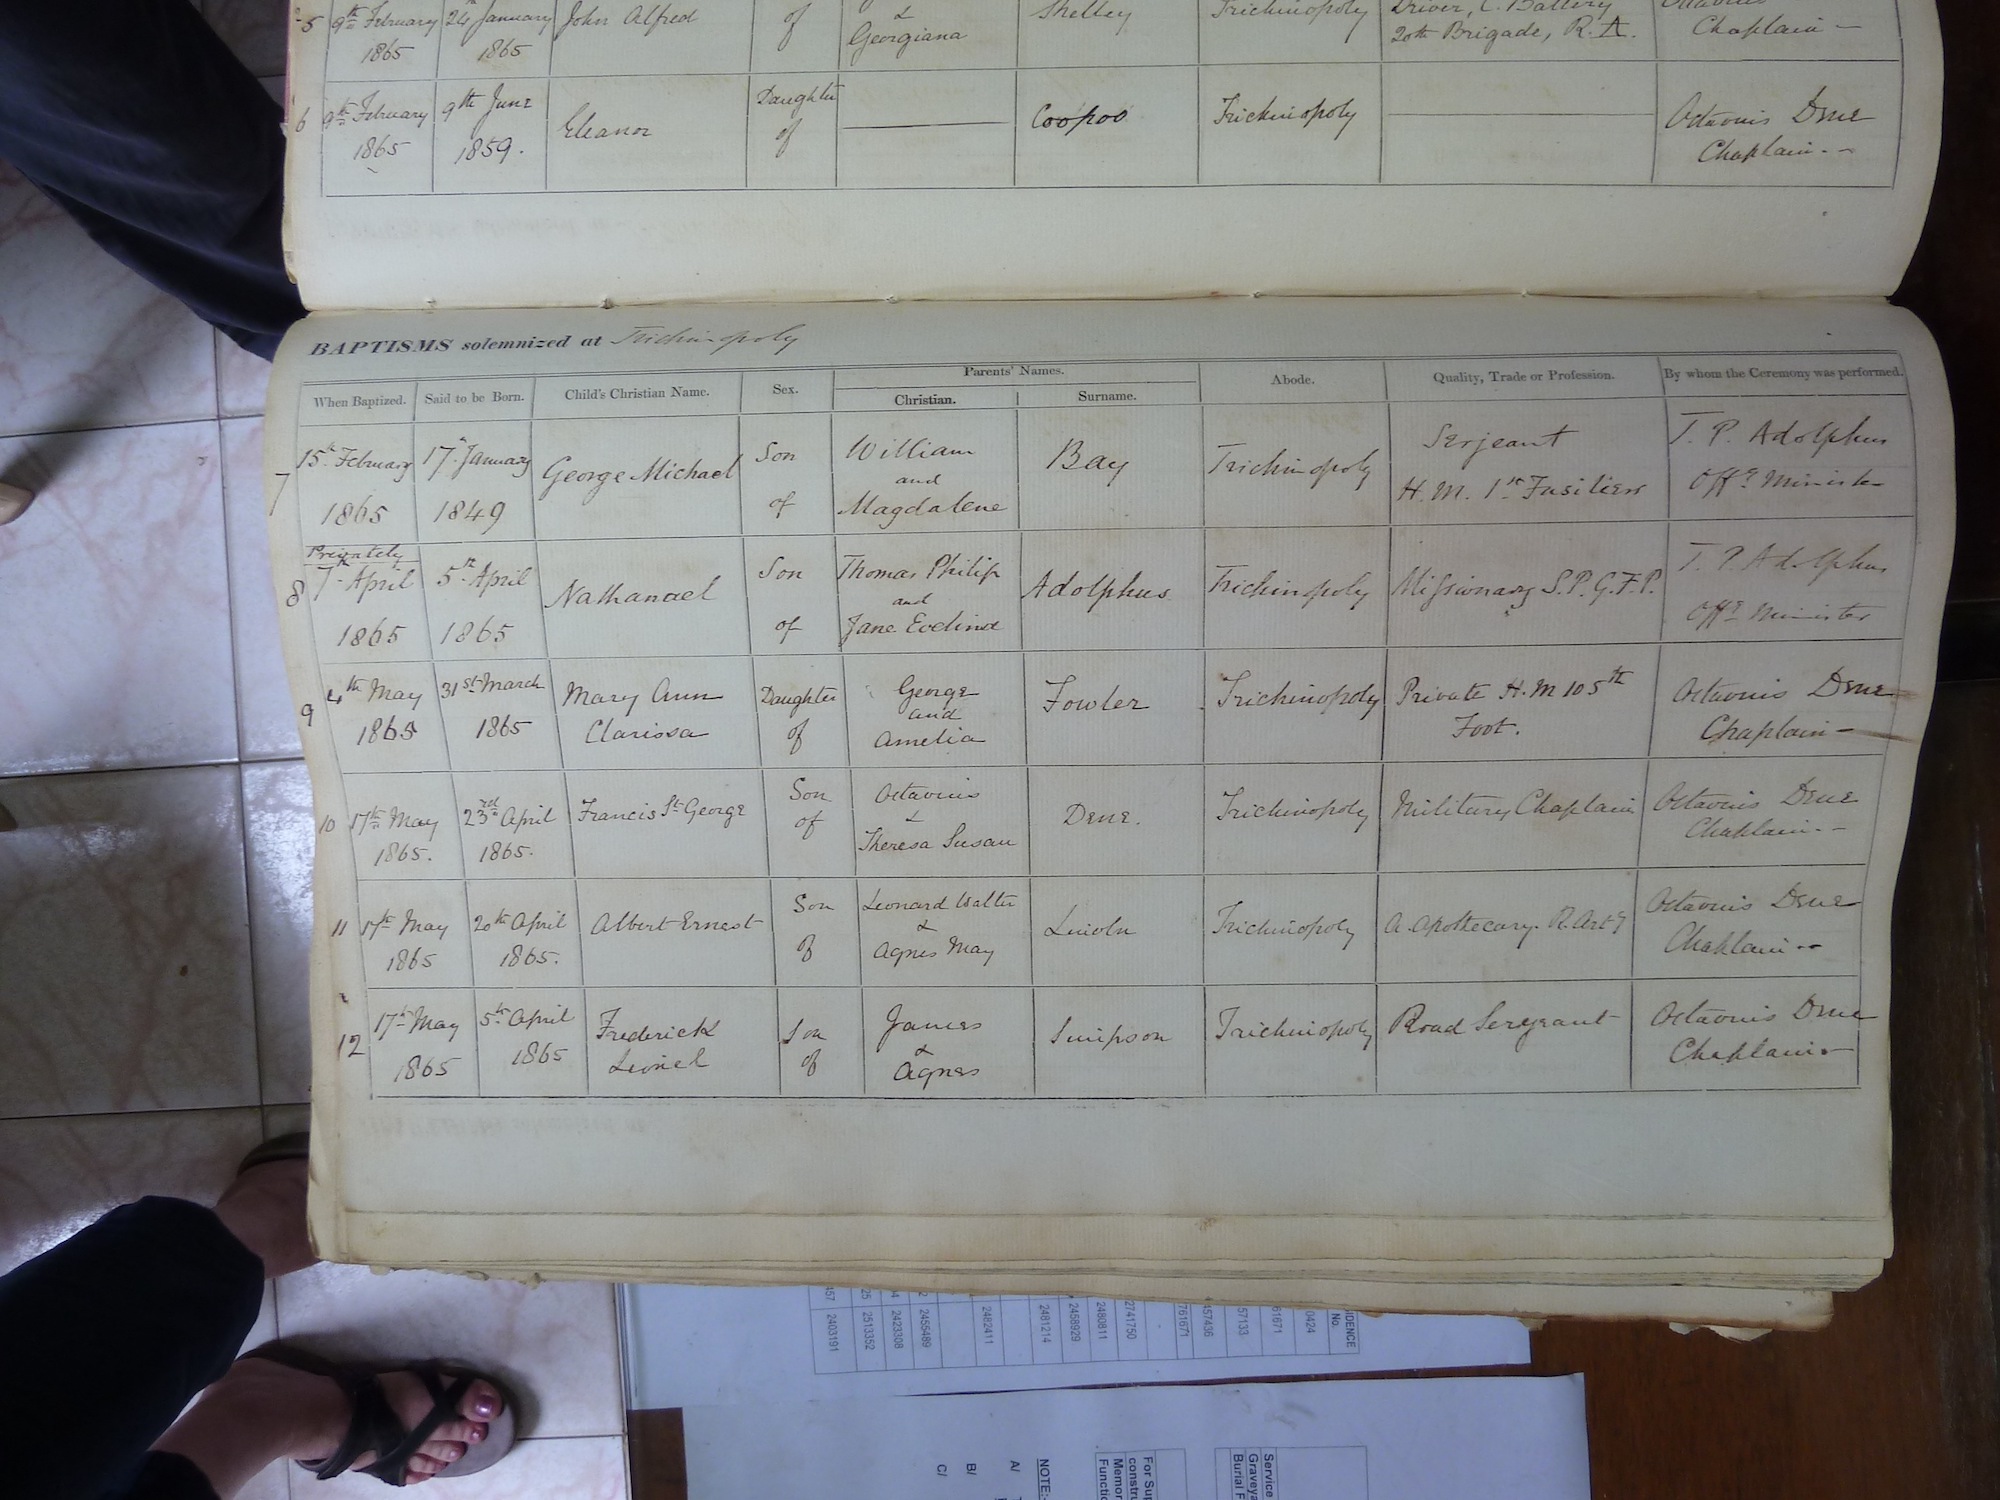 5 9th February 24th January John Alfred of & Georgiana Shelley Trichinopoly Driver, C. Battery
1865 1865 20th Brigade, R.A. Chaplain
6 9th February 9th June Eleanor Daughter of Coopoo Trichinopoly Octavius Dene
1865 1859. Chaplain
BAPTISMS solemnized at Trichinopoly
When Baptized. Said to be Born. Child's Christian Name. Sex. Parents' Names. Abode. Quality, Trade or Profession. By whom the Ceremony was performed.
Christian. Surname.
7 15th February 17th January George Michael Son William Bay Trichinopoly Serjeant T. P. Adolphus
and
1865 1849 of Magdalene H.M. 1st Fusiliers Offg Minister
Privately
8 7th April 5th April Nathanael Son Thomas Philip Adolphus Trichinopoly Missionary S.P.G.F.P. T. P. Adolphus
and
1865 1865 of Jane Evelind Offg Minister
9 4th May 31st March Mary Ann Daughter George Fowler Trichinopoly Private H.M 105th Octavius Dene
and
1865 1865 Clarissa of Amelia Foot. Chaplain
10 17th May 23rd April Francis St. George Son Octavius Dene. Trichinopoly Military Chaplain Octavius Dene
&
1865. 1865. of Theresa Susan Chaplain
11 17th May 20th April Albert Ernest Son Leonard Walter Lincoln Trichinopoly A. Apothecary. R. Arty Octavius Dene
&
1865 1865. of Agnes May Chaplain
12 17th May 5th April Frederick Son James Simpson Trichinopoly Road Sergeant Octavius Dene
&
1865 1865 Lionel of Agnes Chaplain
IDENCE
No.
0424
61671
57133
457436
761671
2741750
2480811
2458929
2481214
2482411
2455489
2423308
2513352
2403191
Service
Graveya
Burial F
For Sup
constru
Memor
Functio
NOTE:-
A/
B/
C/